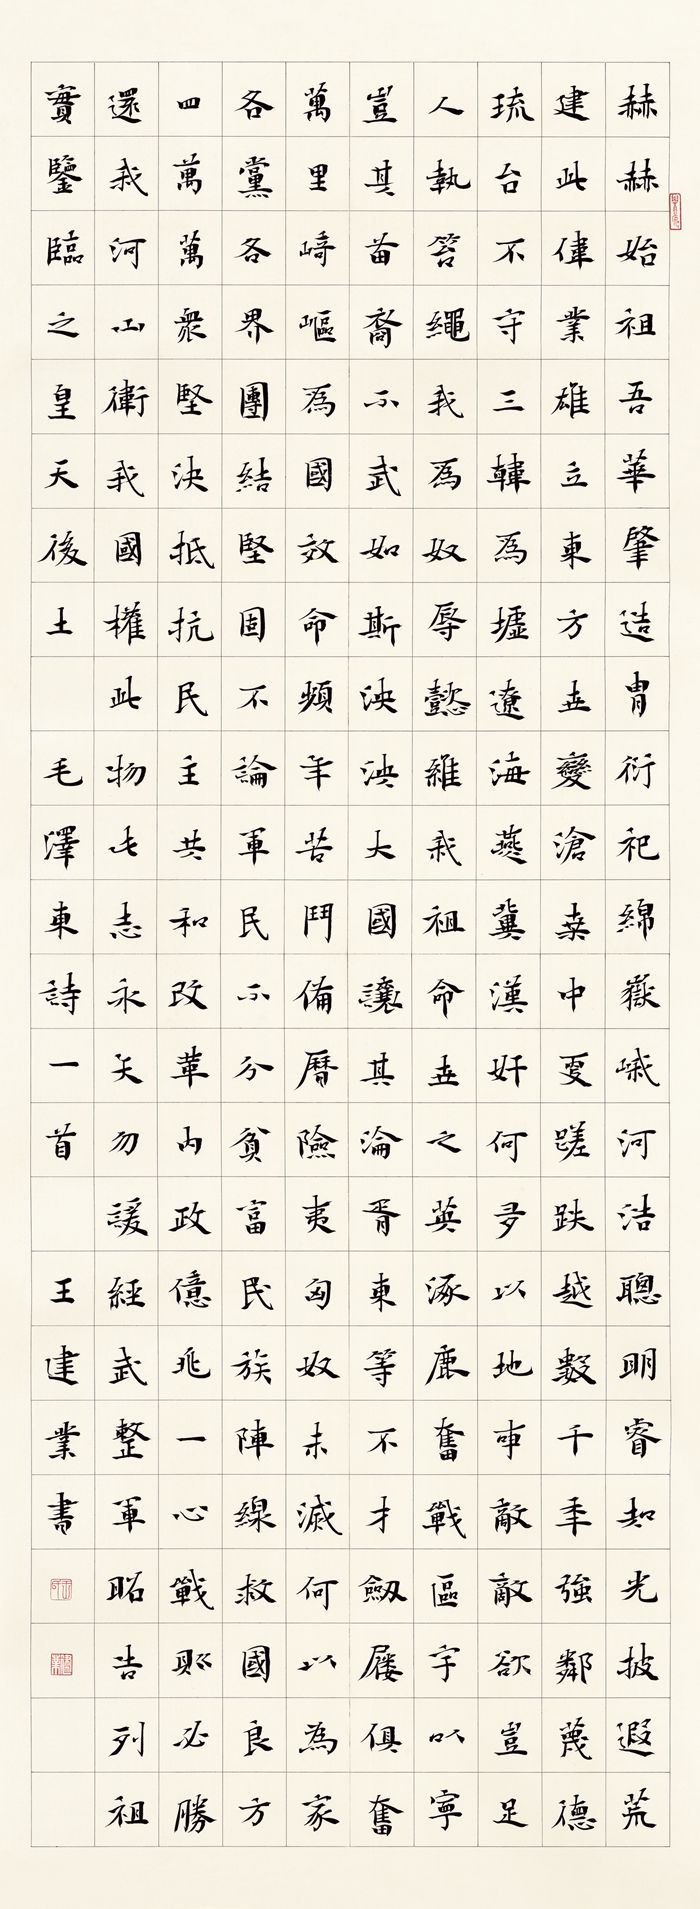 赫赫始祖吾華肇造胄衍祀綿嶽峨河浩聰明睿知光披遐荒
建此偉業雄立東方世變滄桑中更蹉跌越數千年強鄰蔑德
琉台不守三韓為墟遼海燕冀漢奸何多以地事敵敵欲豈足
人執笞繩我為奴辱懿維我祖命世之英涿鹿奮戰區宇以寧
豈其苗裔不武如斯泱泱大國讓其淪胥東等不才劍屨俱奮
萬里崎嶇為國效命頻年苦鬥備曆險夷匈奴未滅何以為家
各黨各界團結堅固不論軍民不分貧富民族陣線救國良方
四萬萬衆堅決抵抗民主共和改革內政億兆一心戰則必勝
還我河山衛我國權此物此志永矢勿諼經武整軍昭告列祖
實鑒臨之皇天後土 毛澤東詩一首 王建業書